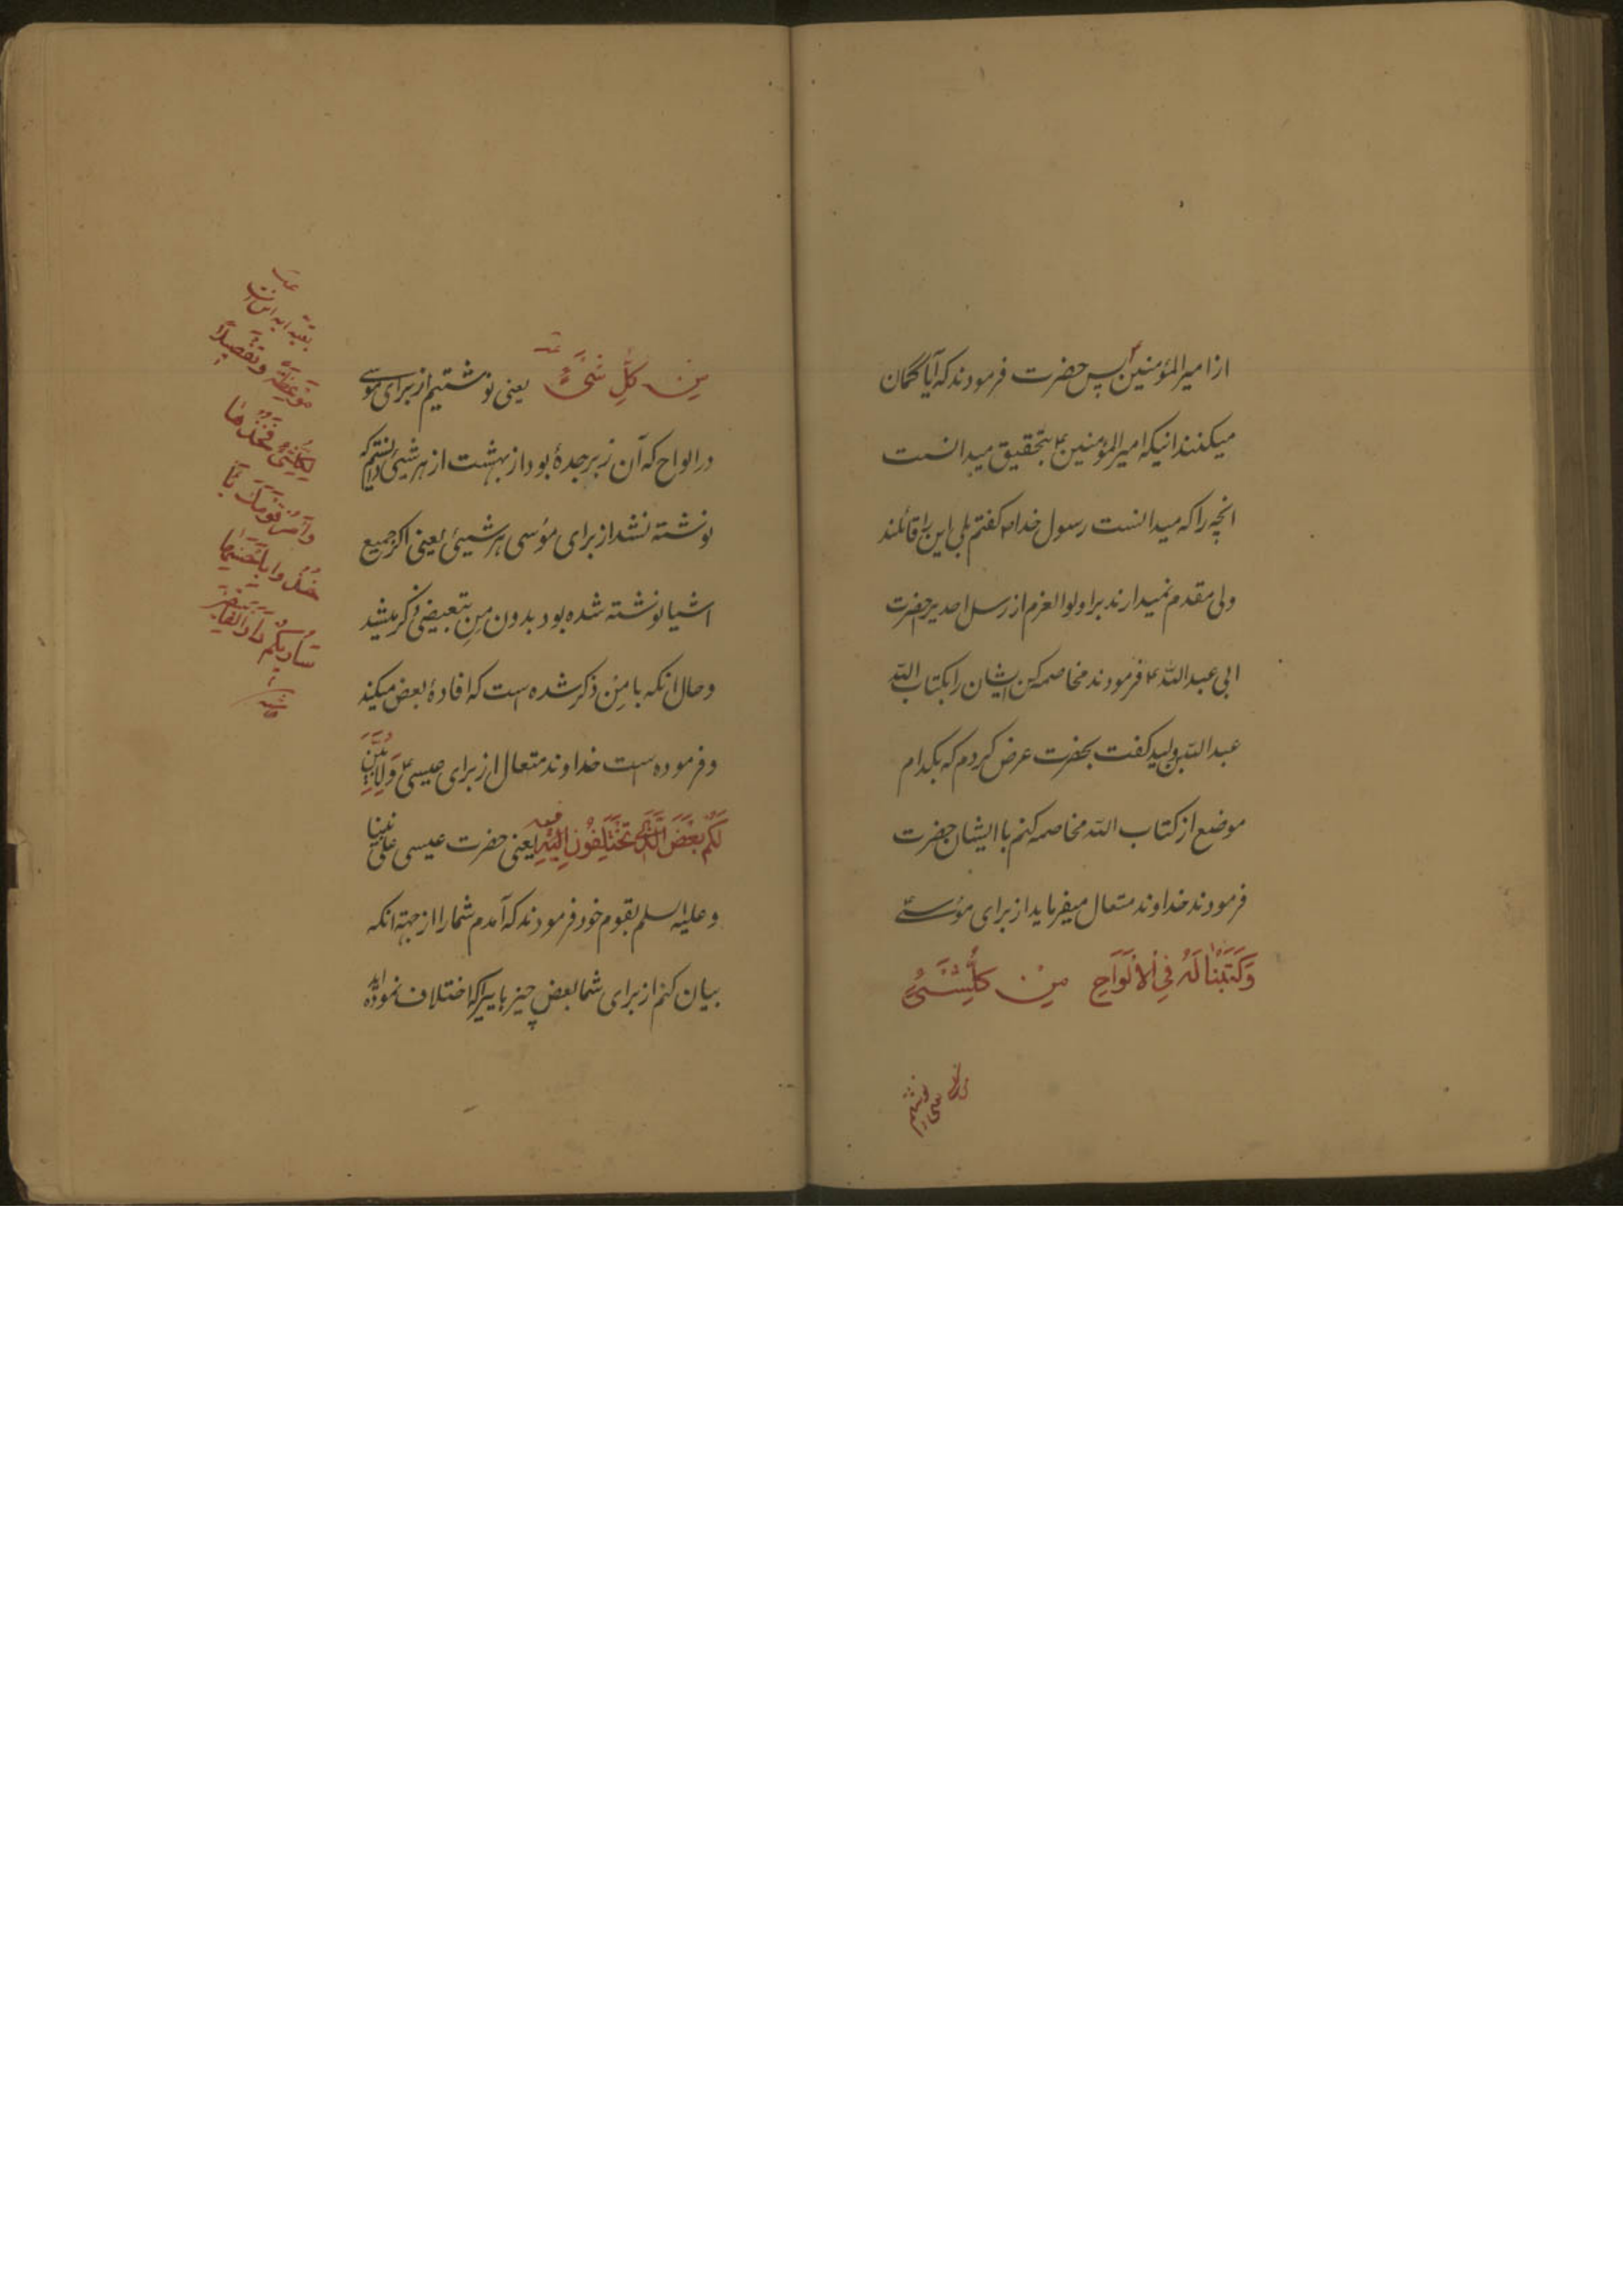 از امیرالمؤمنین ۴ پس حضرت فرمودند که آیا گمان
میکنند اینکه امیرالمؤمنین ۴ بتحقیق میدانست
انچه را که میدانست رسول خدا ص کفتم بلی این را قائلند
ولی مقدم نمیدارند بر اولوالعزم از رسل احدیرا حضرت
ابی عبدالله ۴ فرمودند مخاصمه کن ایشان را بکتاب الله
عبدالله بن ولید کفت بحضرت عرض کردم که بکدام
موضع از کتاب الله مخاصمه کنم با ایشان حضرت
فرمودند خداوند متعال میفرماید از برای موسی ۴
وَكَتَبْنَا لَهُ فِي الْأَلْوَاحِ مِنْ كُلِّ شَيْءٍ
مِنْ كُلِّ شَيْءٍ یعنی نوشتیم از برای موسی
در الواح که آن زبرجدهٔ بود از بهشت از هر شیئی دانستم که
نوشته نشد از برای مؤسی هر شیئی یعنی اکر جمیع
اشیا نوشته شده بود بدون مِن تبعیض ذکر میشد
و حال انکه با مِنْ ذکر شده است که افادهٔ بعض میکند
و فرموده است خداوند متعال از برای عیسی ۴ وَلِأُبَيِّنَ
لَكُمْ بَعْضَ الَّذِي تَخْتَلِفُونَ فیه یعنی حضرت عیسی علی نبینا
و علیه السلم بقوم خود فرمودند که آمدم شما را از جهة انکه
بیان کنم از برای شما بعض چیزهاییرا که اختلاف نموده‌اید
بقیه ایه این است
مَوْعِظَةً وَتَفْصِيلًا
لِكُلِّ شَيْءٍ فَخُذْهَا
وَأْمُرْ قَوْمَكَ يَأْ
خُذُوا بِأَحْسَنِهَا
سَأُرِيكُمْ دَارَ الْفَاسِقِينَ